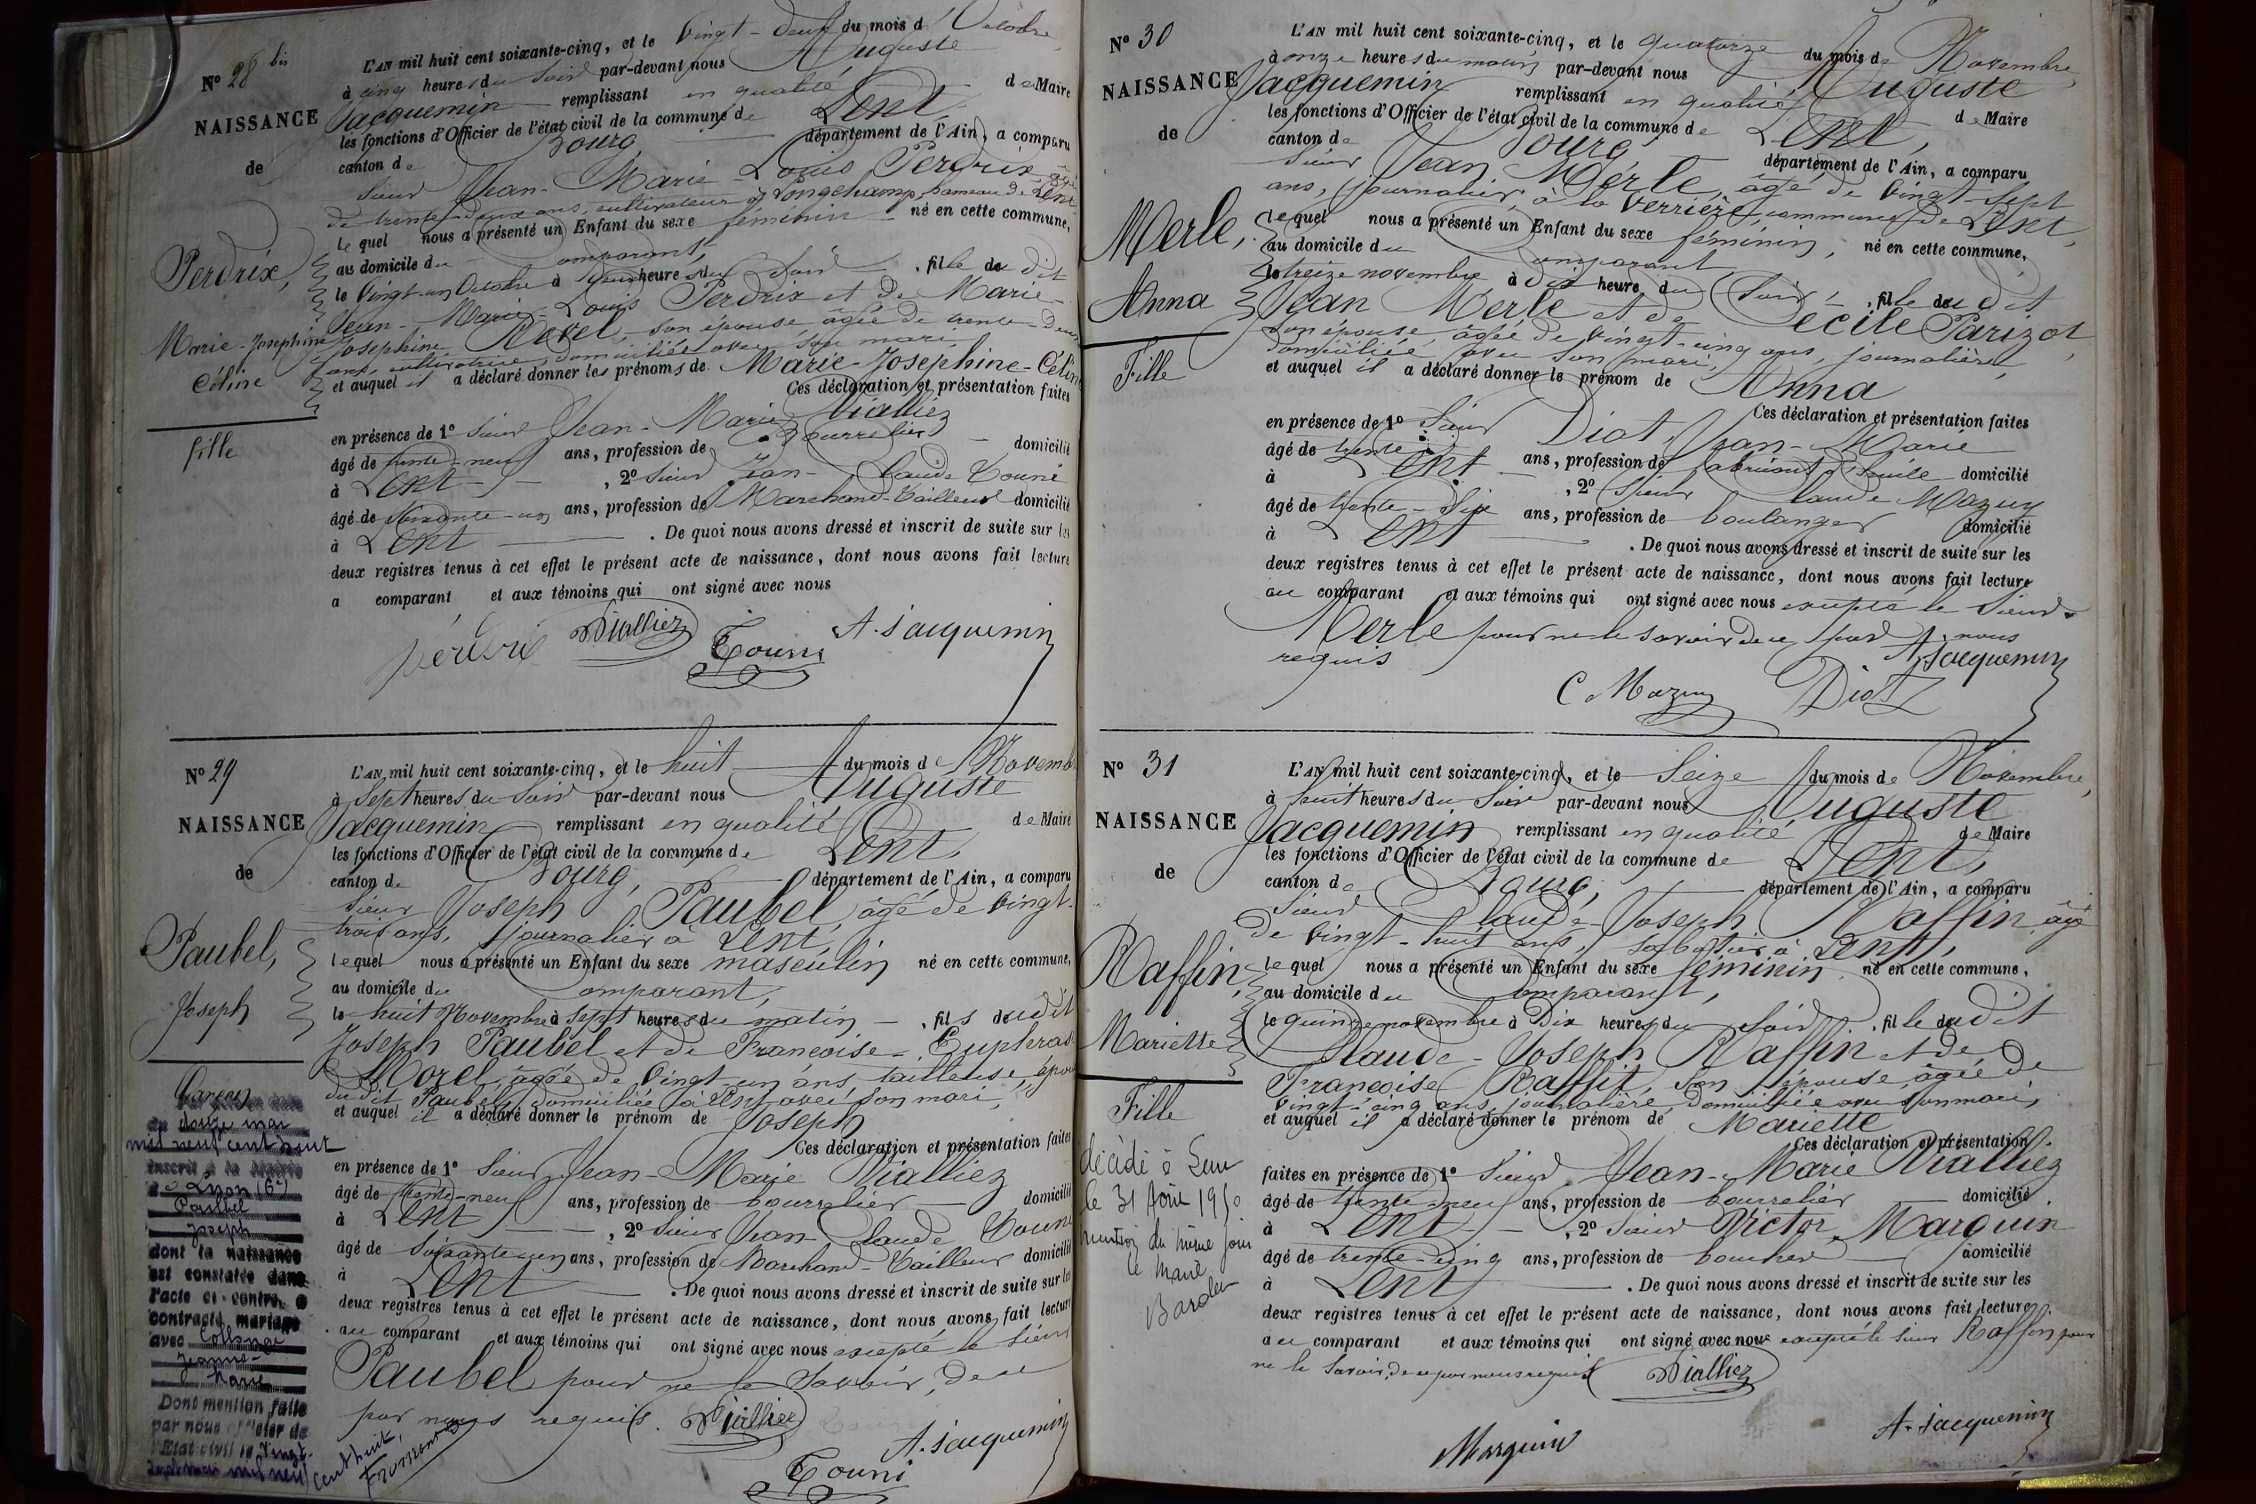 N° 28 bis
NAISSANCE
de
Perdrix,
Marie-Josephine
Céline
fille
L'AN mil huit cent soixante-cinq, et le Vingt-deux du mois d'Octobre,
à cinq heures du Soir par-devant nous Auguste
Jacquemin remplissant en qualité de Maire
les fonctions d'Officier de l'état civil de la commune de Lent,
canton de Bourg, département de l'Ain, a comparu
Sieur Jean-Marie-Louis Perdrix âgé
de trente-deux ans, cultivateur à Longchamp, hameau de Lent
lequel nous a présenté un Enfant du sexe féminin né en cette commune,
au domicile du comparant,
le Vingt-un Octobre à heures du Soir, fille du dit
Jean-Marie-Louis Perdrix et de Marie-
Josephine Revel, son épouse âgée de trente-deux
ans, cultivatrice, domiciliée avec son mari,
et auquel il a déclaré donner les prénoms de Marie-Josephine-Céline
Ces déclaration et présentation faites
en présence de 1° Sieur Jean-Marie Vialliez
âgé de trente-neuf ans, profession de Bourrelier domicilié
à Lent, 2° Sieur Jean-Claude Tourni
âgé de Soixante-un ans, profession de Marchand-Tailleur domicilié
à Lent. De quoi nous avons dressé et inscrit de suite sur les
deux registres tenus à cet effet le présent acte de naissance, dont nous avons fait lecture
a comparant et aux témoins qui ont signé avec nous
perdrix Vialliez Tourni A. Jacquemin
N° 29
NAISSANCE
de
Paubel,
Joseph
Garçon
douze mai
mil neuf cent huit
inscrit à la Mairie
de Lyon (6e)
Paubel
Joseph
dont la naissance
est constatée dans
l'acte ci-contre, a
contracté mariage
avec Collonge
Jeanne-
Marie
Dont mention faite
par nous officier de
l'Etat civil le Vingt-
mil neuf
cent huit,
L'AN mil huit cent soixante-cinq, et le huit du mois de Novembre
à Sept heures du Soir par-devant nous Auguste
Jacquemin remplissant en qualité de Maire
les fonctions d'Officier de l'état civil de la commune de Lent,
canton de Bourg, département de l'Ain, a comparu
Sieur Joseph Paubel, âgé de Vingt-
trois ans, journalier à Lent,
lequel nous a présenté un Enfant du sexe masculin né en cette commune,
au domicile du comparant,
le huit Novembre à Sept heures du matin, fils du dit
Joseph Paubel et de Françoise-Euphras
Morel, âgée de Vingt-un ans, tailleuse, épou
du dit Paubel, domiciliée à Lent avec son mari,
et auquel il a déclaré donner le prénom de Joseph
Ces déclaration et présentation faites
en présence de 1° Sieur Jean-Marie Vialliez
âgé de trente-neuf ans, profession de bourrelier domicilié
à Lent, 2° Sieur Jean Claude Tourni
âgé de Soixante-un ans, profession de Marchand-Tailleur domicilié
à Lent. De quoi nous avons dressé et inscrit de suite sur les
deux registres tenus à cet effet le présent acte de naissance, dont nous avons fait lecture
au comparant et aux témoins qui ont signé avec nous excepté le Sieur
Paubel pour ne le Savoir, de ce
par nous requis. Vialliez
Tourni A. Jacquemin
N° 30
NAISSANCE
de
Merle,
Anna
Fille
L'AN mil huit cent soixante-cinq, et le quatorze du mois de Novembre,
à onze heures du matin par-devant nous Auguste
Jacquemin remplissant en qualité de Maire
les fonctions d'Officier de l'état civil de la commune de Lent,
canton de Bourg département de l'Ain, a comparu
Sieur Jean Merle, âgé de Vingt-Sept
ans, journalier, à la Verrière, commune de Lent,
lequel nous a présenté un Enfant du sexe féminin, né en cette commune,
au domicile du comparant
le treize novembre à dix heures du Soir, fille du dit
Jean Merle et de Cécile Parizot,
Son épouse, âgée de Vingt-cinq ans, journalière,
domiciliée avec Son mari,
et auquel il a déclaré donner le prénom de Anna
Ces déclaration et présentation faites
en présence de 1° Sieur Diot, Jean-Marie
âgé de trente ans, profession de fabricant d'huile domicilié
à Lent, 2° Sieur Claude Mazuy
âgé de trente-Six ans, profession de boulanger domicilié
à Lent. De quoi nous avons dressé et inscrit de suite sur les
deux registres tenus à cet effet le présent acte de naissance, dont nous avons fait lecture
au comparant et aux témoins qui ont signé avec nous excepté le Sieur
Merle pour ne le Savoir de ce par nous
requis A. Jacquemin
C Mazuy Diot
N° 31
NAISSANCE
de
Raffin,
Mariette
Fille
décédé à Lent
le 31 Août 1950
mention du même jour
le Maire
L'AN mil huit cent soixante-cinq, et le Seize du mois de Novembre,
à huit heures du Soir par-devant nous Auguste
Jacquemin remplissant en qualité de Maire
les fonctions d'Officier de l'état civil de la commune de Lent,
canton de Bourg, département de l'Ain, a comparu
Sieur Claude-Joseph Raffin, âgé
de Vingt-huit ans, sabotier à Lent,
lequel nous a présenté un Enfant du sexe féminin né en cette commune,
au domicile du comparant,
le quinze novembre à Dix heures du Soir, fille du dit
Claude-Joseph Raffin et de
Françoise Baffit, Son épouse, âgée de
Vingt-cinq ans, journalière, domiciliée avec Son mari,
et auquel il a déclaré donner le prénom de Mariette
Ces déclaration et présentation
faites en présence de 1° Sieur Jean-Marie Vialliez
âgé de trente-neuf ans, profession de bourrelier domicilié
à Lent, 2° Sieur Victor Marguin
âgé de trente-cinq ans, profession de boucher domicilié
à Lent. De quoi nous avons dressé et inscrit de suite sur les
deux registres tenus à cet effet le présent acte de naissance, dont nous avons fait lecture
au comparant et aux témoins qui ont signé avec nous excepté le sieur Raffin pour
ne le Savoir, de ce par nous requis Vialliez
Marguin A. Jacquemin